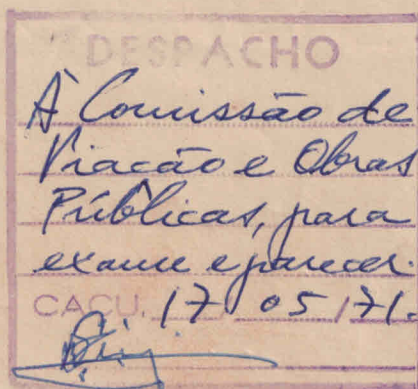 DESPACHO
À Comissão de
Viacão e Obras
Públicas, para
exame e parecer.
CAÇU, 17/05/71.